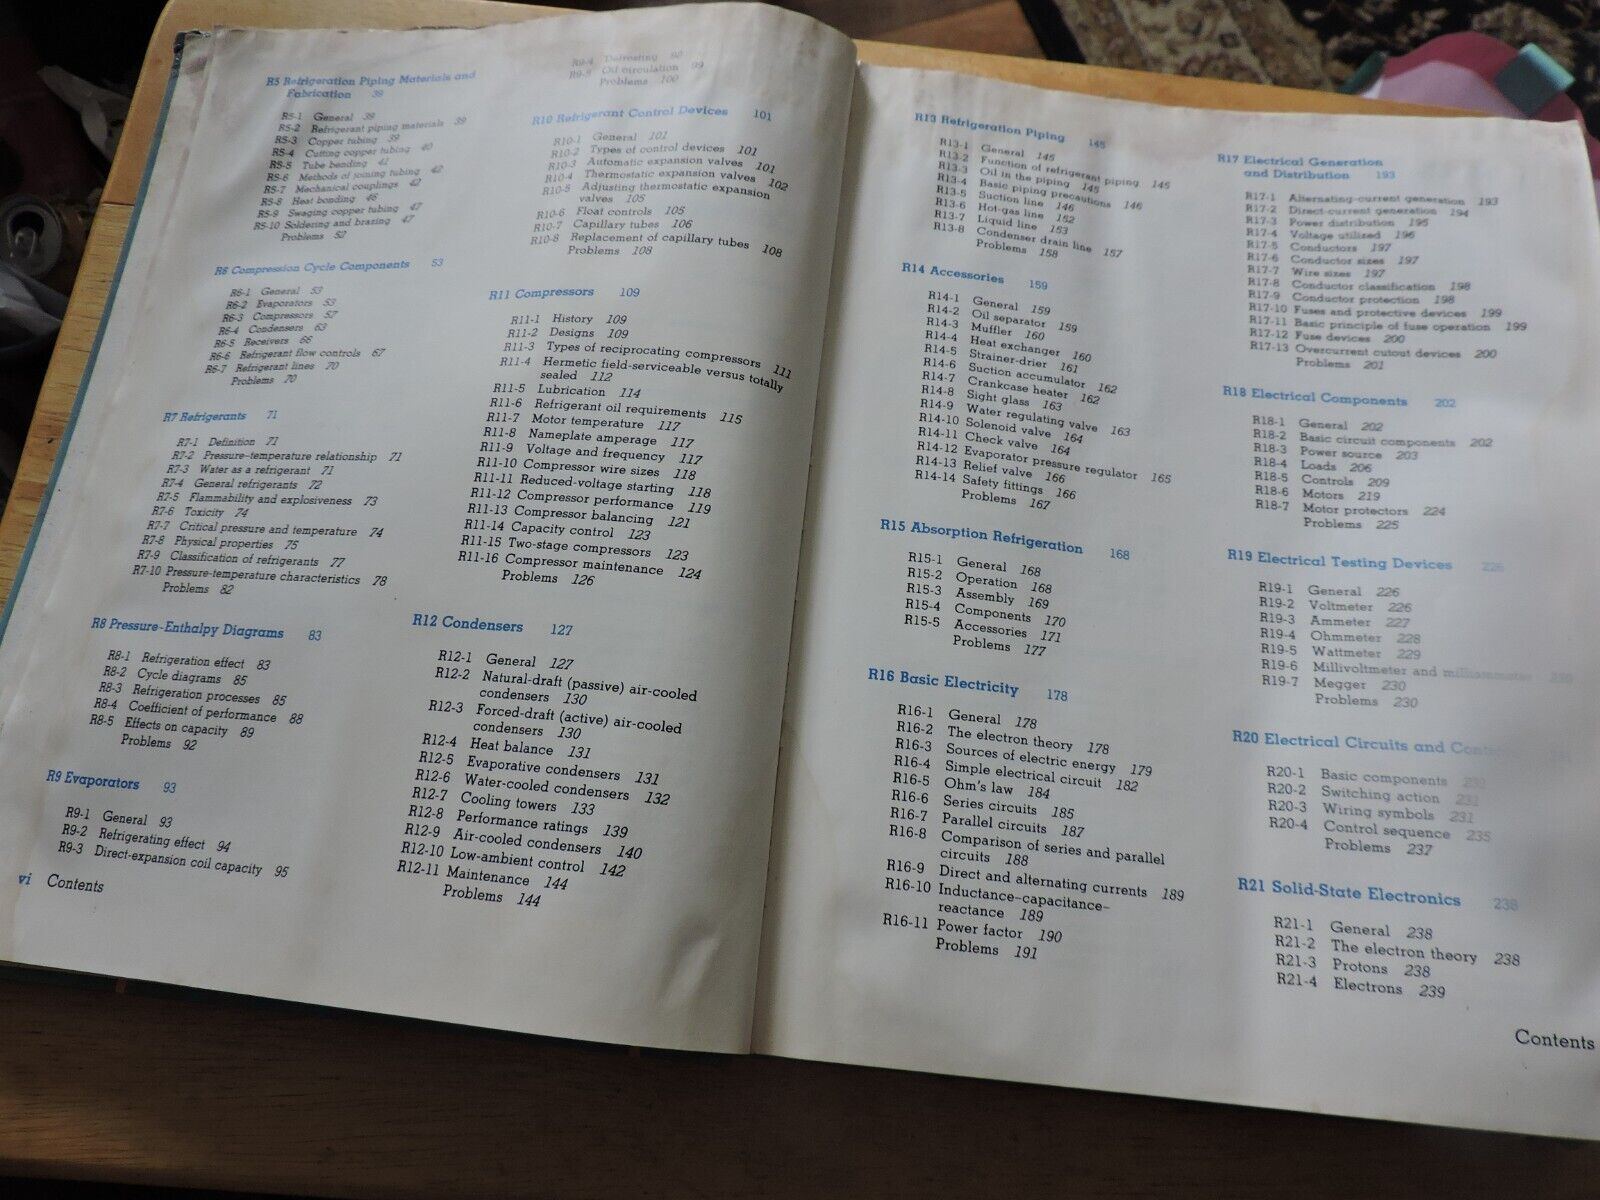 R5 Refrigeration Piping Materials and
Fabrication 39
R5-1 General 39
R5-2 Refrigerant piping materials 39
R5-3 Copper tubing 39
R5-4 Cutting copper tubing 40
R5-5 Tube bending 41
R5-6 Methods of joining tubing 42
R5-7 Mechanical couplings 42
R5-8 Heat bonding 46
R5-9 Swaging copper tubing 47
R5-10 Soldering and brazing 47
Problems 52
R6 Compression Cycle Components 53
R6-1 General 53
R6-2 Evaporators 53
R6-3 Compressors 57
R6-4 Condensers 63
R6-5 Receivers 66
R6-6 Refrigerant flow controls 67
R6-7 Refrigerant lines 70
Problems 70
R7 Refrigerants 71
R7-1 Definition 71
R7-2 Pressure–temperature relationship 71
R7-3 Water as a refrigerant 71
R7-4 General refrigerants 72
R7-5 Flammability and explosiveness 73
R7-6 Toxicity 74
R7-7 Critical pressure and temperature 74
R7-8 Physical properties 75
R7-9 Classification of refrigerants 77
R7-10 Pressure-temperature characteristics 78
Problems 82
R8 Pressure-Enthalpy Diagrams 83
R8-1 Refrigeration effect 83
R8-2 Cycle diagrams 85
R8-3 Refrigeration processes 85
R8-4 Coefficient of performance 88
R8-5 Effects on capacity 89
Problems 92
R9 Evaporators 93
R9-1 General 93
R9-2 Refrigerating effect 94
R9-3 Direct-expansion coil capacity 95
vi Contents
R9-4 Defrosting 98
R9-5 Oil circulation 99
Problems 100
R10 Refrigerant Control Devices 101
R10-1 General 101
R10-2 Types of control devices 101
R10-3 Automatic expansion valves 101
R10-4 Thermostatic expansion valves 102
R10-5 Adjusting thermostatic expansion
valves 105
R10-6 Float controls 105
R10-7 Capillary tubes 106
R10-8 Replacement of capillary tubes 108
Problems 108
R11 Compressors 109
R11-1 History 109
R11-2 Designs 109
R11-3 Types of reciprocating compressors 111
R11-4 Hermetic field-serviceable versus totally
sealed 112
R11-5 Lubrication 114
R11-6 Refrigerant oil requirements 115
R11-7 Motor temperature 117
R11-8 Nameplate amperage 117
R11-9 Voltage and frequency 117
R11-10 Compressor wire sizes 118
R11-11 Reduced-voltage starting 118
R11-12 Compressor performance 119
R11-13 Compressor balancing 121
R11-14 Capacity control 123
R11-15 Two-stage compressors 123
R11-16 Compressor maintenance 124
Problems 126
R12 Condensers 127
R12-1 General 127
R12-2 Natural-draft (passive) air-cooled
condensers 130
R12-3 Forced-draft (active) air-cooled
condensers 130
R12-4 Heat balance 131
R12-5 Evaporative condensers 131
R12-6 Water-cooled condensers 132
R12-7 Cooling towers 133
R12-8 Performance ratings 139
R12-9 Air-cooled condensers 140
R12-10 Low-ambient control 142
R12-11 Maintenance 144
Problems 144
R13 Refrigeration Piping 145
R13-1 General 145
R13-2 Function of refrigerant piping 145
R13-3 Oil in the piping 145
R13-4 Basic piping precautions 146
R13-5 Suction line 146
R13-6 Hot-gas line 152
R13-7 Liquid line 153
R13-8 Condenser drain line 157
Problems 158
R14 Accessories 159
R14-1 General 159
R14-2 Oil separator 159
R14-3 Muffler 160
R14-4 Heat exchanger 160
R14-5 Strainer-drier 161
R14-6 Suction accumulator 162
R14-7 Crankcase heater 162
R14-8 Sight glass 163
R14-9 Water regulating valve 163
R14-10 Solenoid valve 164
R14-11 Check valve 164
R14-12 Evaporator pressure regulator 165
R14-13 Relief valve 166
R14-14 Safety fittings 166
Problems 167
R15 Absorption Refrigeration 168
R15-1 General 168
R15-2 Operation 168
R15-3 Assembly 169
R15-4 Components 170
R15-5 Accessories 171
Problems 177
R16 Basic Electricity 178
R16-1 General 178
R16-2 The electron theory 178
R16-3 Sources of electric energy 179
R16-4 Simple electrical circuit 182
R16-5 Ohm's law 184
R16-6 Series circuits 185
R16-7 Parallel circuits 187
R16-8 Comparison of series and parallel
circuits 188
R16-9 Direct and alternating currents 189
R16-10 Inductance–capacitance–
reactance 189
R16-11 Power factor 190
Problems 191
R17 Electrical Generation
and Distribution 193
R17-1 Alternating-current generation 193
R17-2 Direct-current generation 194
R17-3 Power distribution 195
R17-4 Voltage utilized 196
R17-5 Conductors 197
R17-6 Conductor sizes 197
R17-7 Wire sizes 197
R17-8 Conductor classification 198
R17-9 Conductor protection 198
R17-10 Fuses and protective devices 199
R17-11 Basic principle of fuse operation 199
R17-12 Fuse devices 200
R17-13 Overcurrent cutout devices 200
Problems 201
R18 Electrical Components 202
R18-1 General 202
R18-2 Basic circuit components 202
R18-3 Power source 203
R18-4 Loads 206
R18-5 Controls 209
R18-6 Motors 219
R18-7 Motor protectors 224
Problems 225
R19 Electrical Testing Devices 226
R19-1 General 226
R19-2 Voltmeter 226
R19-3 Ammeter 227
R19-4 Ohmmeter 228
R19-5 Wattmeter 229
R19-6 Millivoltmeter and milliammeter 230
R19-7 Megger 230
Problems 230
R20 Electrical Circuits and
R20-1 Basic components 231
R20-2 Switching action 231
R20-3 Wiring symbols 231
R20-4 Control sequence 235
Problems 237
R21 Solid-State Electronics 238
R21-1 General 238
R21-2 The electron theory 238
R21-3 Protons 238
R21-4 Electrons 239
Contents